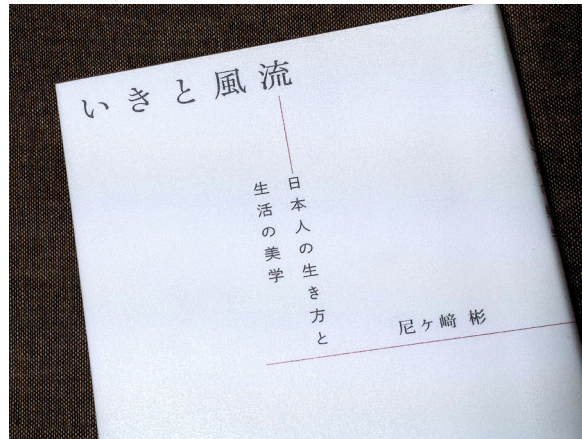 いきと風流
日本人の生き方と
生活の美学
尼ヶ﨑 彬